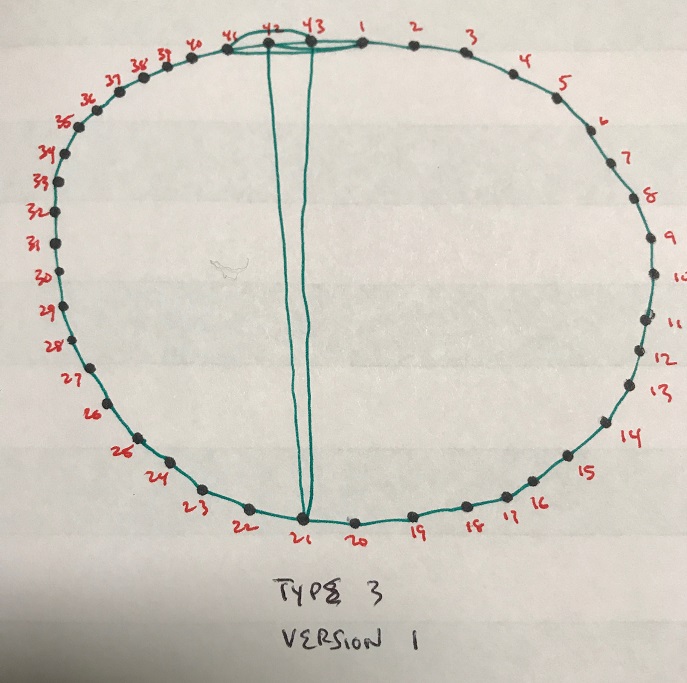 41 42 43 1 2 3 4 5 6 7 8 9 10 11 12 13 14 15 16 17 18 19 20 21 22 23 24 25 26 27 28 29 30 31 32 33 34 35 36 37 38 39 40
TYPE 3
VERSION 1